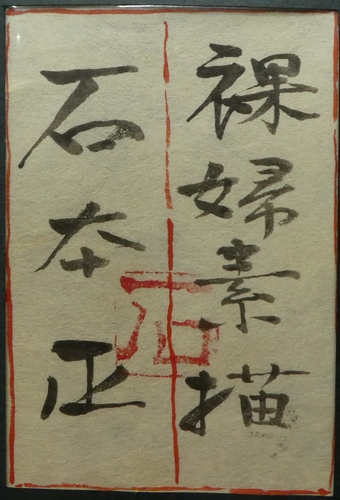 裸婦素描
石本正
石